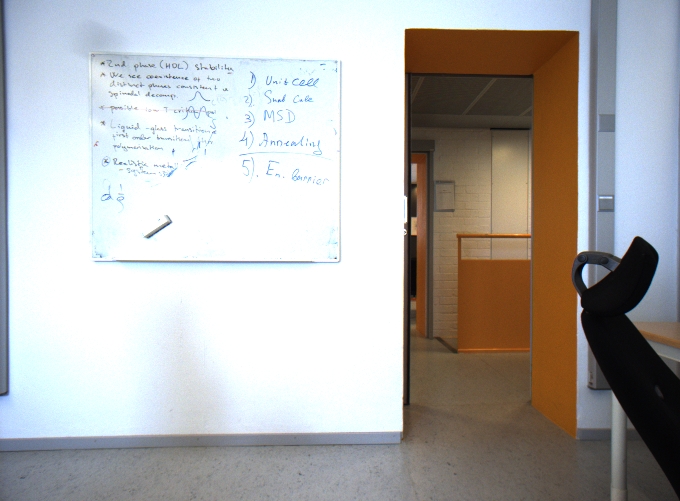 * 2nd phase (HDL) stability
* We see coexistence of two
distinct phases consistent w
spinodal decomp.
* possible low T critical
* Liquid-glass transition
first order transition
polymerisation
* Realistic meta
- system
1) Unit Cell
2)
3) MSD
4) Annealing
5). En. Barrier